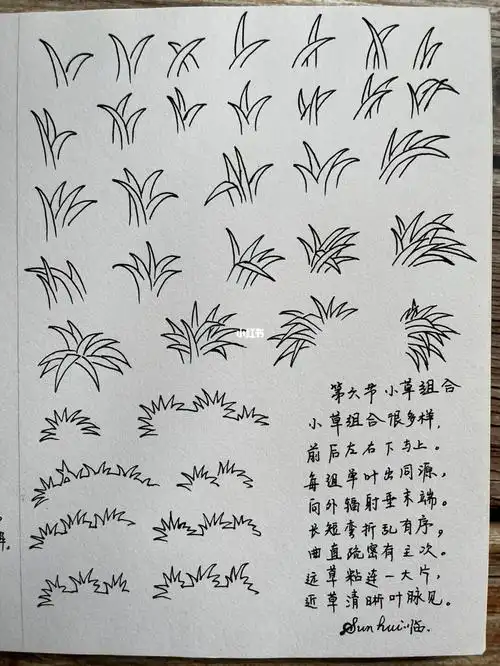 小红书
第六节 小草组合
小草组合很多样,
前后左右下与上。
每组草叶出同源,
向外辐射垂末端。
长短弯折乱有序,
曲直疏密有主次。
远草粘连一大片,
近草清晰叶脉见。
Sunhui 临.